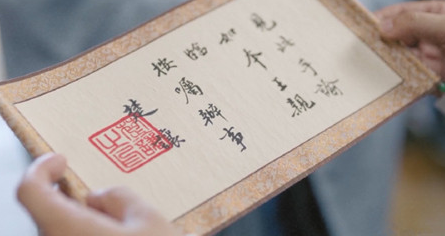 見此手諭
如本王親
臨
按囑辦事
楚襄